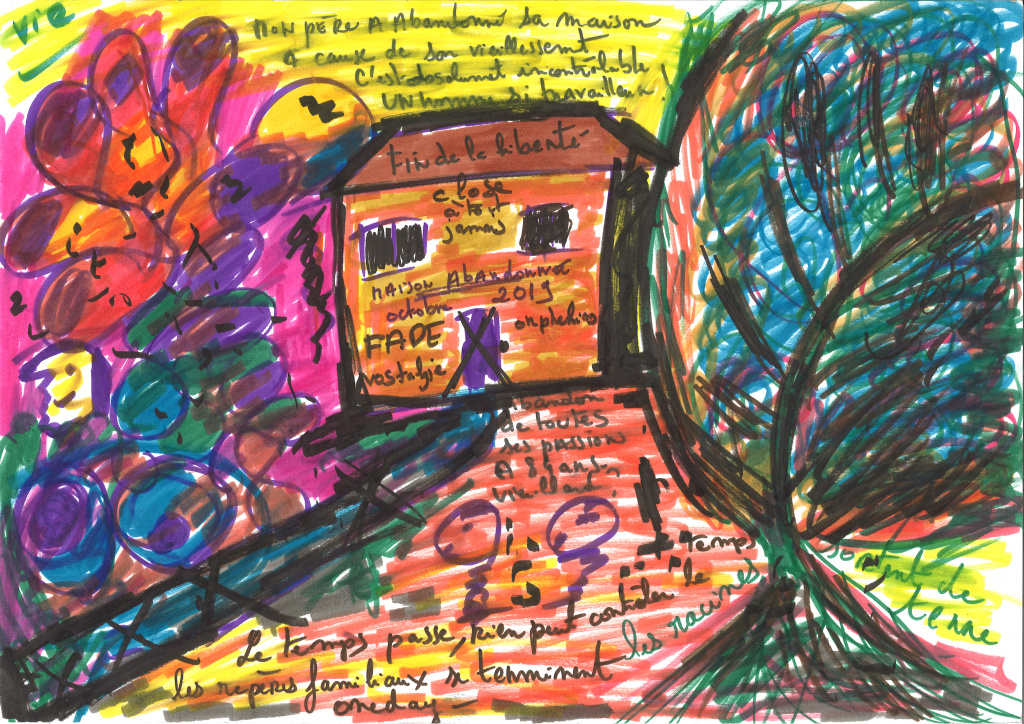 vie
MON PÈRE A Abandonné sa maison
à cause de son vieillissement
c'est absolument incontrolable
UN homme si travailleur !
Fin de la liberté
close
à tout
jamais
MAISON Abandonnée
octobre 2019
FADE
nostalgie
Abandon
de toutes
ses passions
A 8 ans,
vieillard
Le temps passe, rien peut controler le temps
les repères familiaux se terminent
one day
les racines sortent de
terre